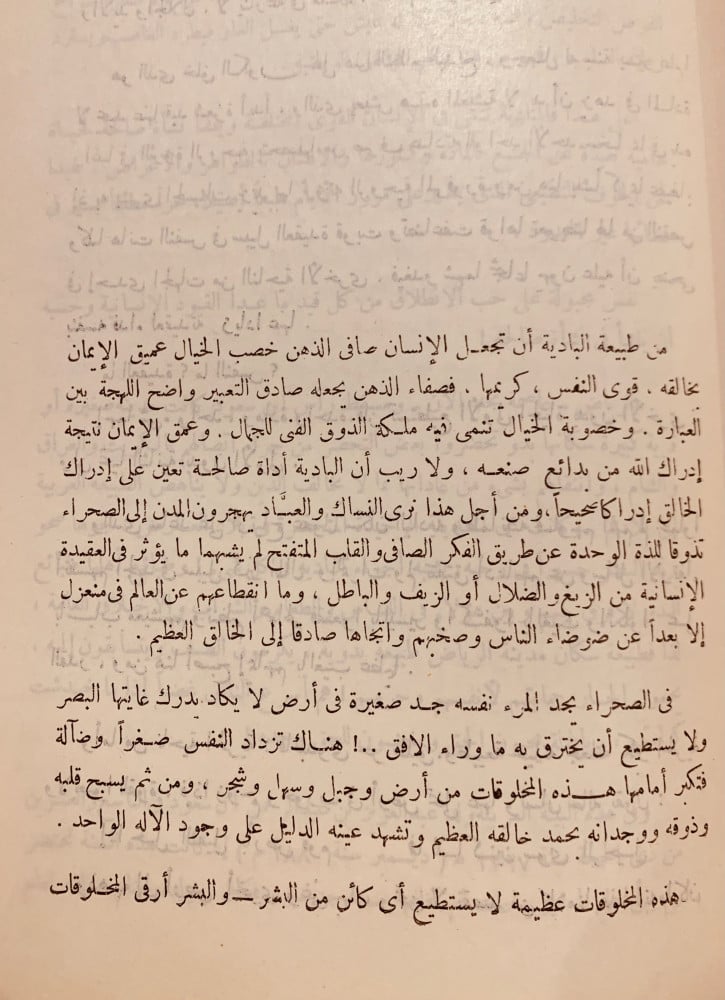 من طبيعة البادية أن تجعـل الإنسان صافى الذهن خصب الخيال عميق الإيمان
بخالقه . قوى النفس ، كريمها . فصفاء الذهن يجعله صادق التعبير واضح اللهجة بين
العبارة . وخصوبة الخيال تنمى فيه ملـكة الذوق الفنى للجمال . وعمق الإيمان نتيجة
إدراك الله من بدائع صنعـه ، ولا ريب أن البادية أداة صالحـة تعين على إدراك
الخالق إدراكا صحيحاً ، ومن أجل هذا نرى النساك والعبـَّاد يهجرون المدن إلى الصحراء
تذوقا للذة الوحدة عن طريق الفكر الصافى والقلب المتفتح لم يشبهما ما يؤثر فى العقيدة
الإنسانية من الزيغ والضلال أو الزيف والباطل ، وما انقطاعهم عن العالم فى منعزل
إلا بعداً عن ضوضاء الناس وصخبهم واتجاها صادقا إلى الخالق العظيم .
فى الصحراء يجد المرء نفسه جـد صغيرة فى أرض لا يكاد يدرك غايتها البصر
ولا يستطيع أن يخترق به ما وراء الافق ..! هنـاك تزداد النفس صـغراً وضآلة
فتكبر أمامها هـــذه المخلوقات من أرض وجبل وسهل وشجر ، ومن ثم يسبح قلبه
وذوقه ووجدانه بحمد خالقه العظيم وتشهد عينه الدليل على وجود الآله الواحد .
هذه المخلوقات عظيمة لا يستطيع أى كائن من البشر ـــ والبشر أرقى المخـلوقات